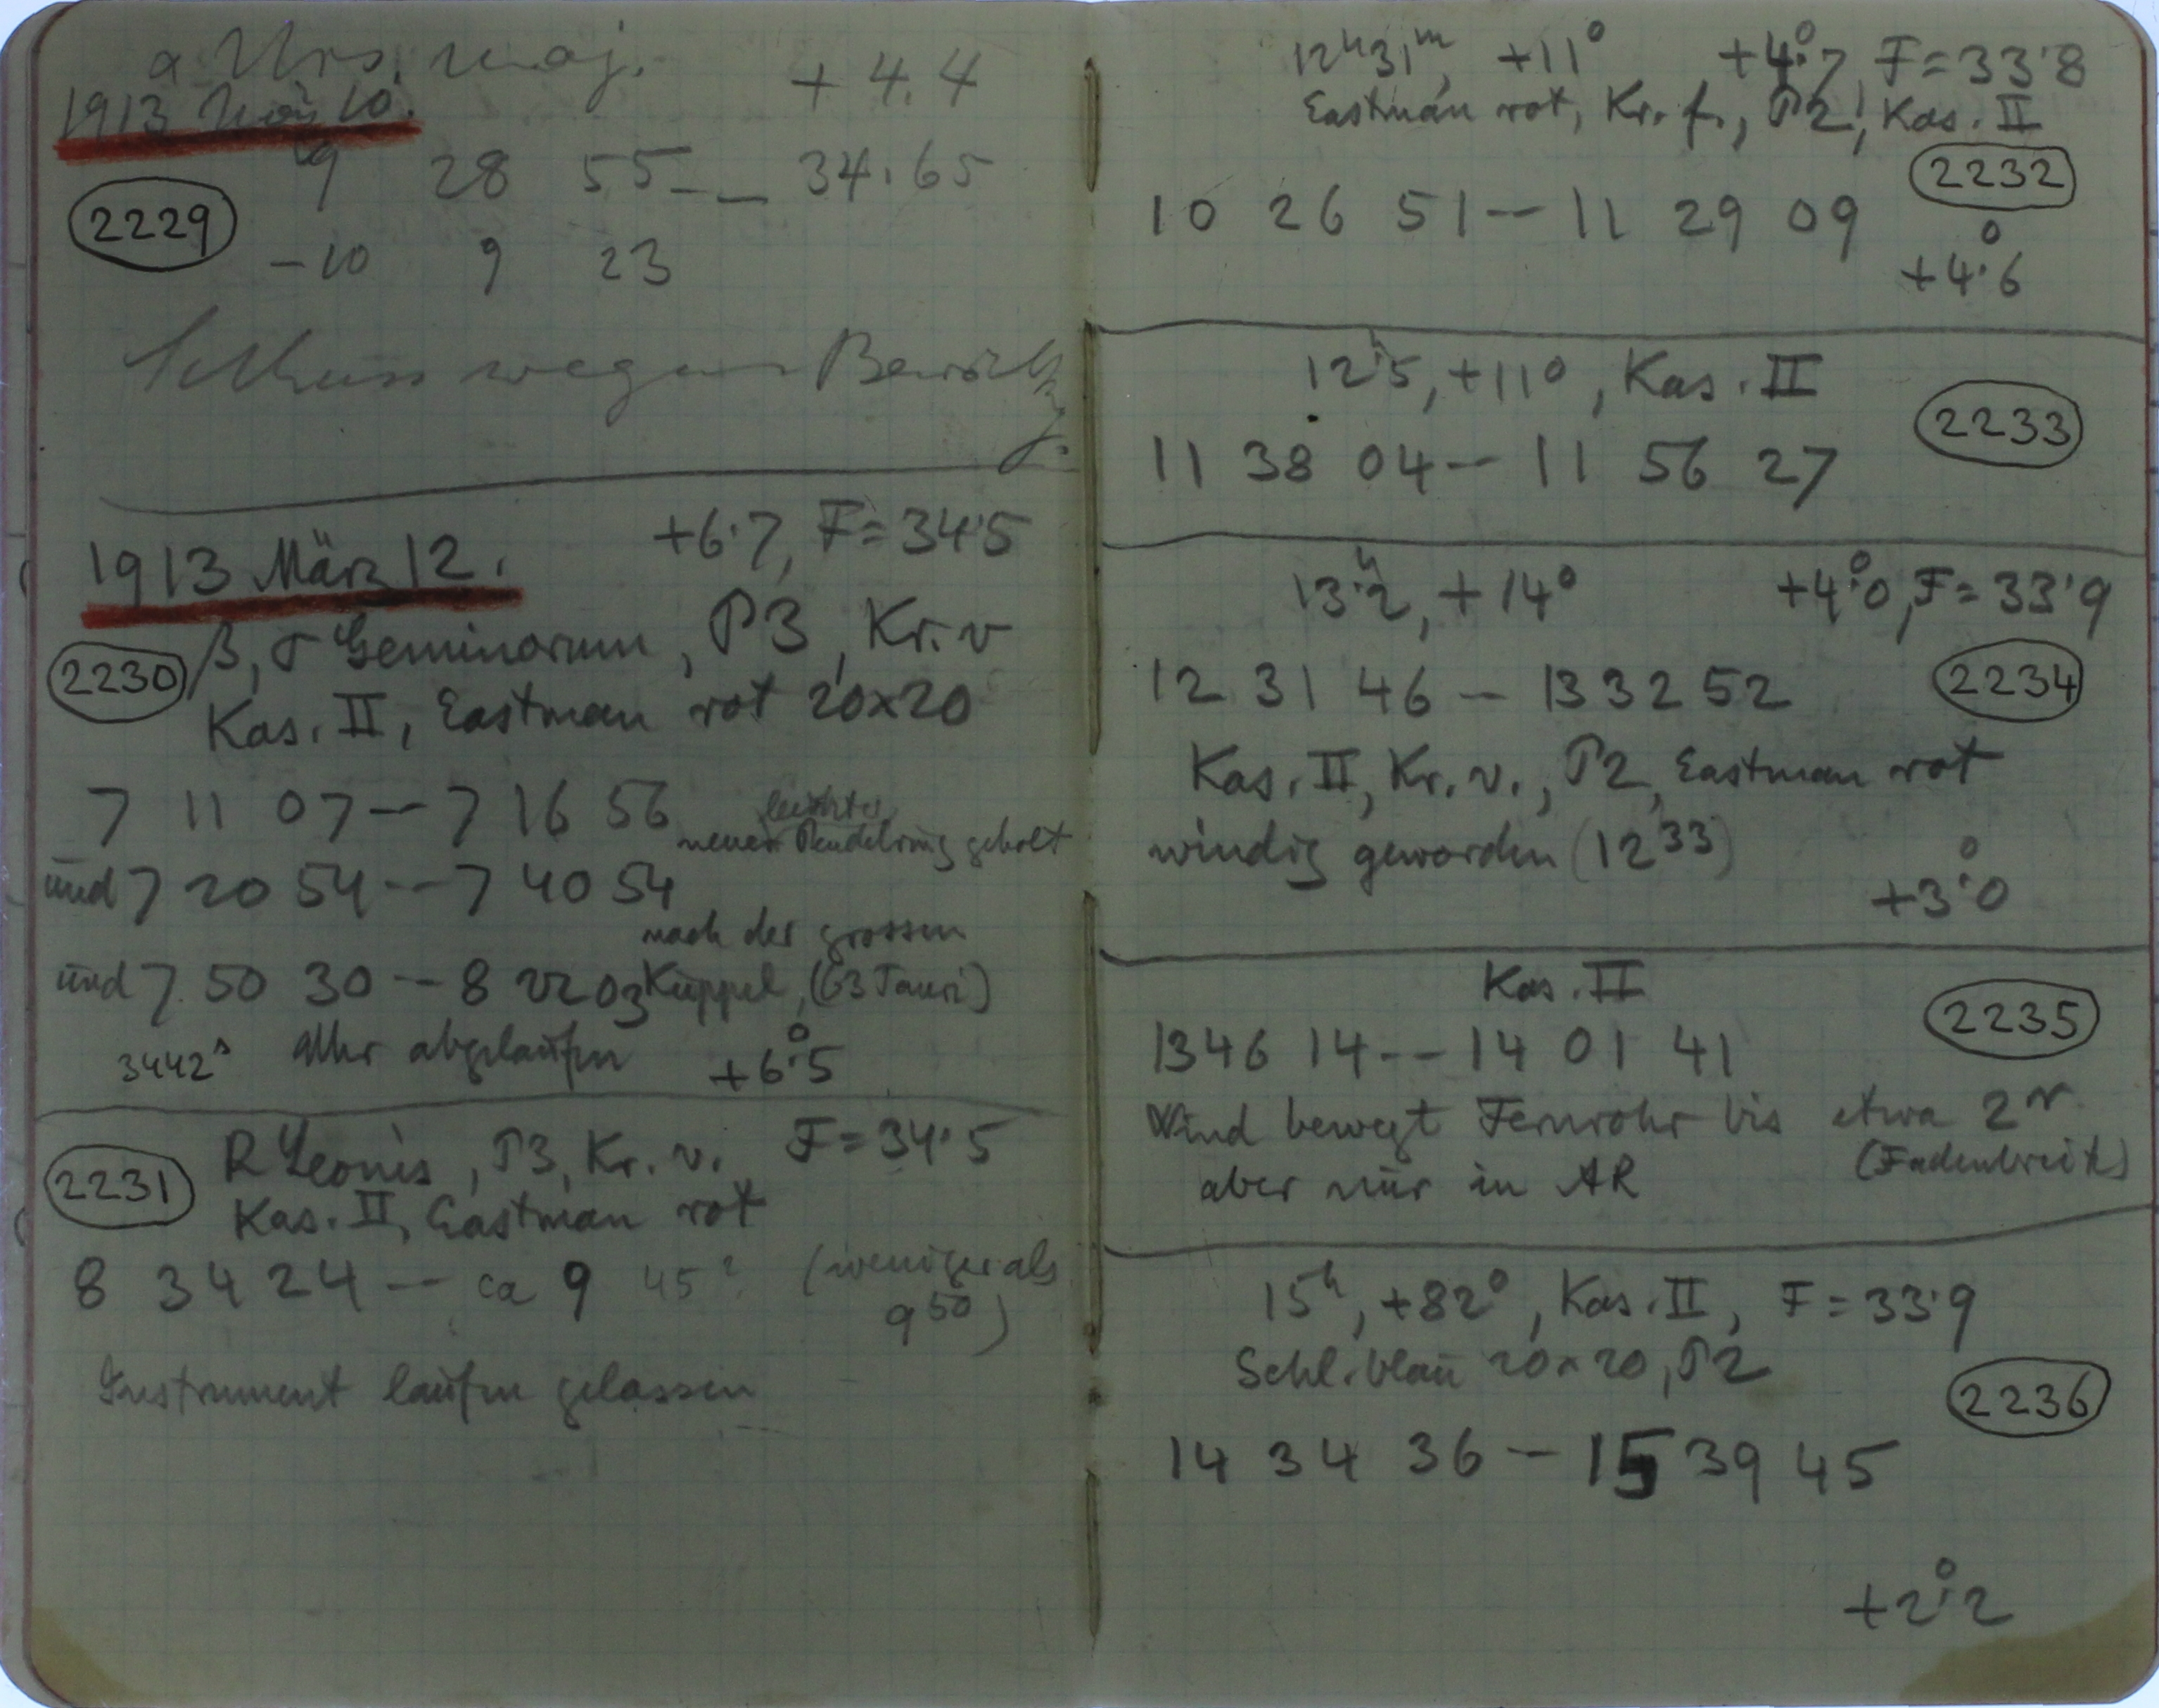 α Urs. maj. +4.4
1913 März 10.
9 28 55 -- 34.65
2229
-10 9 23
Schluss wegen Bewölkg.
1913 März 12. +6.7, F=34.5
2230 β, σ Geminorum, P3, Kr. v
Kas. II, Eastman rot 20x20
7 11 07 -- 7 16 56
leichter
neuer Pendelring geholt
und 7 20 54 -- 7 40 54
nach der grossen
und 7 50 30 -- 8 22 03 Kuppel, (63 Tauri)
3442s Uhr abgelaufen +6°.5
2231 R Leonis, P3, Kr. v. F=34.5
Kas. II, Eastman rot
8 34 24 -- ca 9 45? (weniger als
9 50)
Instrument laufen gelassen
12h31m, +11° +4°.7, F=33.8
Eastman rot, Kr. f., P2, Kas. II
2232
10 26 51 -- 11 29 09
+4°.6
12h.5, +11°, Kas. II
2233
11 38 04 -- 11 56 27
13h.2, +14° +4°.0, F=33.9
12 31 46 - 13 32 52 2234
Kas. II, Kr. v., P2, Eastman rot
windig geworden (12 33)
+3°.0
Kas. II
2235
13 46 14 -- 14 01 41
Wind bewegt Fernrohr bis etwa 2r
aber nur in AR (Fadenbreite)
15h, +82°, Kas. II, F=33.9
Schl. blau 20x20, P2
2236
14 34 36 - 15 39 45
+2°.2